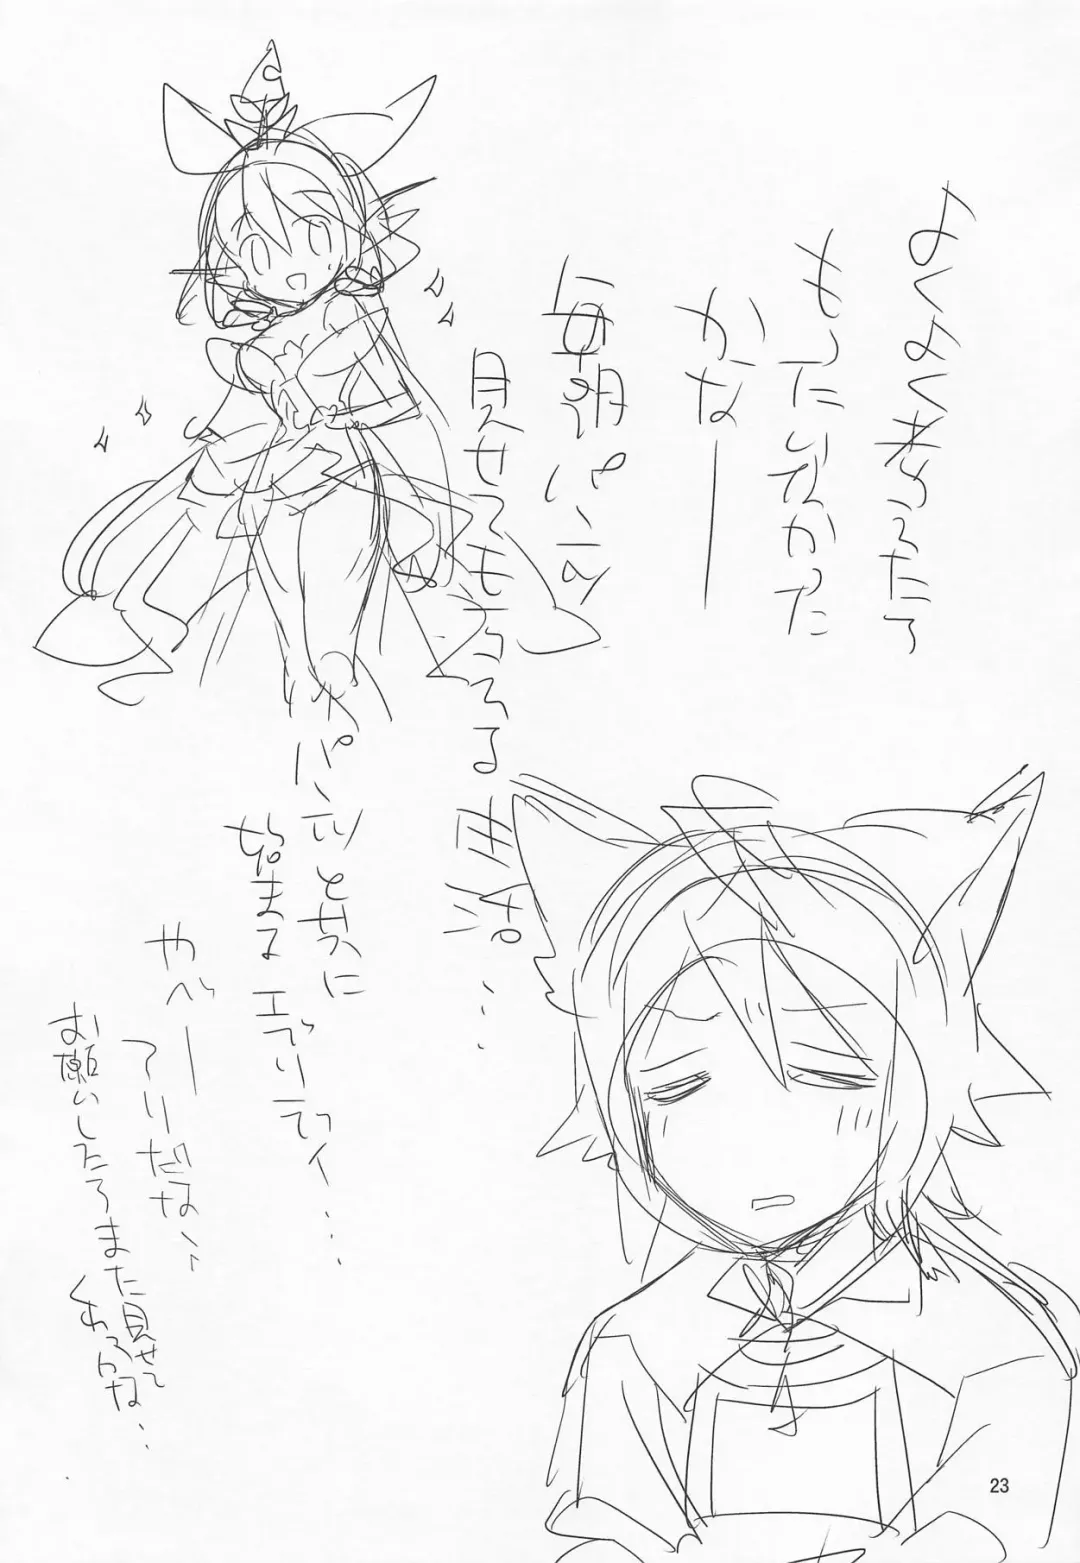 よくよく考えたら
もったいなかった
かなー
毎朝パンツ
見せてもらえる世界…
パンツとともに
始まるエブリデイ…
やべー
アリだな、、
お願いしたらまた見せて
くれっかな…
23